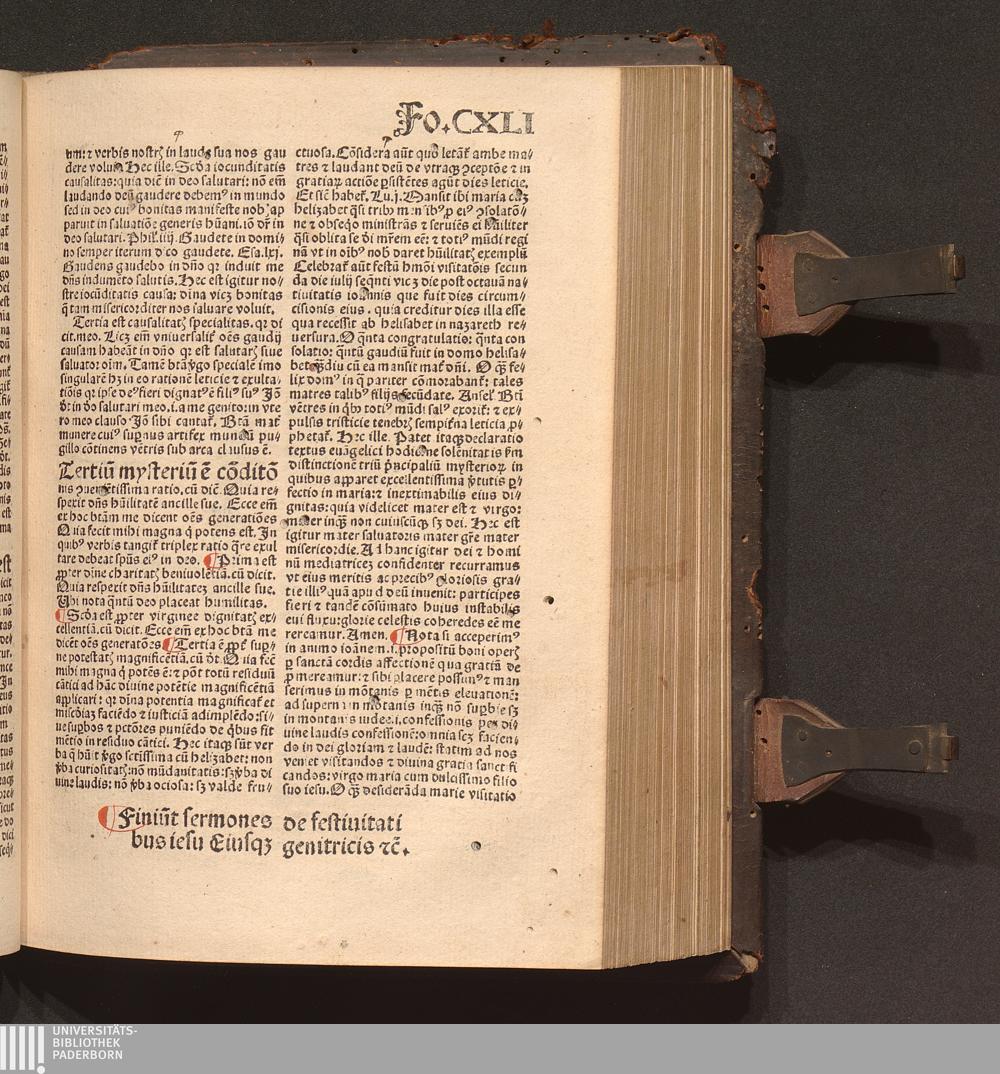 Fo.CXLI
um: ⁊ verbis nostrꝫ in laudꝫ sua nos gau
dere voluit. Hec ille. Scd̄a iocunditatis
causalitas: quia dic̄ in deo salutari: nō em̄
laudando deū gaudere debemꝰ in mundo
sed in deo cuiꝰ bonitas manifeste nob̄ ap
paruit in saluatiōe generis hūani. iō dr̄ in
deo salutari. Phil. iiij. Gaudete in domi/
no semper iterum d̓co gaudete. Esa. lxj.
Gaudens gaudebo in dn̄o qꝛ induit me
dn̄s indumēto salutis. Hec est igitur no/
stre iocūditatis causa: dīna vicꝫ bonitas
q̄ tam misericorditer nos saluare voluit.
Tertia est causalitatꝫ specialitas. qꝛ di
cit. meo. Licꝫ em̄ vniuersalił oēs gaudij
causam habeāt in dn̄o qꝛ est salutarꝫ siue
saluator oīm. Tamē btā v̓go specialē imo
singularē hꝫ in eo rationē leticie ⁊ exulta/
tiōis qꝛ ipse deꝰ fieri dignatꝰ ē filiꝰ suꝰ Jō
dr̄ in deo salutari meo. i. a me genito: in vte
ro meo clauso Jō sibi cantat̄. Btā mat̄
munere cuiꝰ sup̄nus artifex mundū pu/
gillo cōtinens vētris sub arca clausus ē.
Tertiū mysteriū ē cōditō
nis ꝯuenētissima ratio. cū dic̄. Quia re/
spexit dn̄s hūilitatē ancille sue. Ecce em̄
ex hoc btām me dicent oēs generatiōes
Quia fecit mihi magna q̇ potens est. In
quibꝰ verbis tangit̄ triplex ratio q̄re exul
tare debeat spūs eiꝰ in deo. Prima est
ꝓpter dīne charitatꝫ beniuolētiā. cū dicit.
Quia respexit dn̄s hūilitateꝫ ancille sue.
Ubi nota q̄ntū deo placeat humilitas.
Scd̄a est ꝓpter virginee dignitatꝫ ex/
cellentiā. cū dicit. Ecce em̄ ex hoc btā me
dicēt oēs generatōes Tertia ē ꝓpt̄ sup̄/
ne potestatꝫ magnificētiā. cū dt̄. Quia fec̄
mihi magna q̇ potēs ē: ⁊ pōt totū residuū
cātici ad hāc diuine potētie magnificētiā
applicari: qꝛ dīna potentia magnificat̄ et
miscōiaꝫ faciēdo ⁊ iusticiā adimplēdo: si/
ue suꝑbos ⁊ pctōres puniēdo de q̇bus fit
mētio in residuo cātici. Hec itaqꝫ sūt ver
ba q̄ hūit v̓go sctīssima cū helizabet: non
v̓ba curiositatꝫ: nō mūdanitatis: sꝫ v̓ba di
uine laudis: nō v̓ba ociosa: sꝫ valde fru/
ctuosa. Cōsidera aūt quō letāt̄ ambe ma/
tres ⁊ laudant deū de vtraqꝫ ꝯceptōe ⁊ in
gratiaꝝ actiōe ꝑsistētes agūt dies leticie.
Et sic̄ habet̄. Lu. j. Mansit ibi maria cuꝫ
helizabet q̄si tribꝰ mensibꝰ ꝓ eiꝰ ꝯsolatō/
ne ⁊ obseq̇o ministrās ⁊ seruiēs ei hūiliter
q̄si oblita se dī mr̄em eē: ⁊ totiꝰ mūdi regi
nā vt in oībꝰ nob̄ daret hūilitatꝫ exemplū
Celebrat̄ aūt festū hmōi visitatōis secun
da die iulij seq̄nti vicꝫ die post octauā na/
tiuitatis ioannis que fuit dies circum/
cisionis eius. quia creditur dies illa esse
qua recessit ab helisabet in nazareth re/
uersura. O q̄nta congratulatio: q̄nta con
solatio: q̄ntū gaudiū fuit in domo helisa/
bet q̄ȝdiu cū ea mansit mat̄ dn̄i. O q̄ȝ fe/
lix domꝰ in q̄ pariter cōmorabant̄: tales
matres talibꝰ filijs fecūdate. Ansel. Bti
vētres in q̇bꝰ totiꝰ mūdi salꝰ exorit̄: ⁊ ex/
pulsis tristicie tenebrꝫ sempit̄na leticia ꝓ/
phetat̄. Hec ille. Patet itaqꝫ declaratio
textus euāgelici hodierne solēnitatis fm̄
distinctionē triū p̄ncipaliū mysterioꝝ in
quibus apparet excellentissima v̓tutis ꝑ/
fectio in maria: ⁊ inextimabilis eius di/
gnitas: quia videlicet mater est ⁊ virgo:
mater inqȝ non cuiuscūqȝ sꝫ dei. Hec est
igitur mater saluatoris mater gr̄e mater
misericordie. Ad hanc igitur dei ⁊ homi
nū mediatriceꝫ confidenter recurramus
vt eius meritis ac precibꝰ gloriosis gra/
tie illiꝰ quā apud deū inuenit: participes
fieri ⁊ tandē cōsūmato huius instabilis
eui fluxu: glorie celestis coheredes eē me
reremur. Amen. Nota si acceperimꝰ
in animo ioānem. i. propositū boni operꝫ
ꝑ sanctā cordis affectionē qua gratiā de
ꝓ mereamur: ⁊ sibi placere possimꝰ ⁊ man
serimus in mōtanis ꝑ mētis eleuationē:
ad supernam mōtanis inqȝ nō suꝑbie sꝫ
in montanis iudee. i. confessionis per di/
uine laudis confessionē: omnia sez facien/
do in dei gloriam ⁊ laudē: statim ad nos
veniet visitandos ⁊ diuina gratia sanctifi
candos: virgo maria cum dulcissimo filio
suo iesu. O qȝ desiderāda marie visitatio
Finiūt sermones de festiuitati
bus iesu Eiusqꝫ genitricis ⁊c̄.
UNIVERSITÄTS-
BIBLIOTHEK
PADERBORN